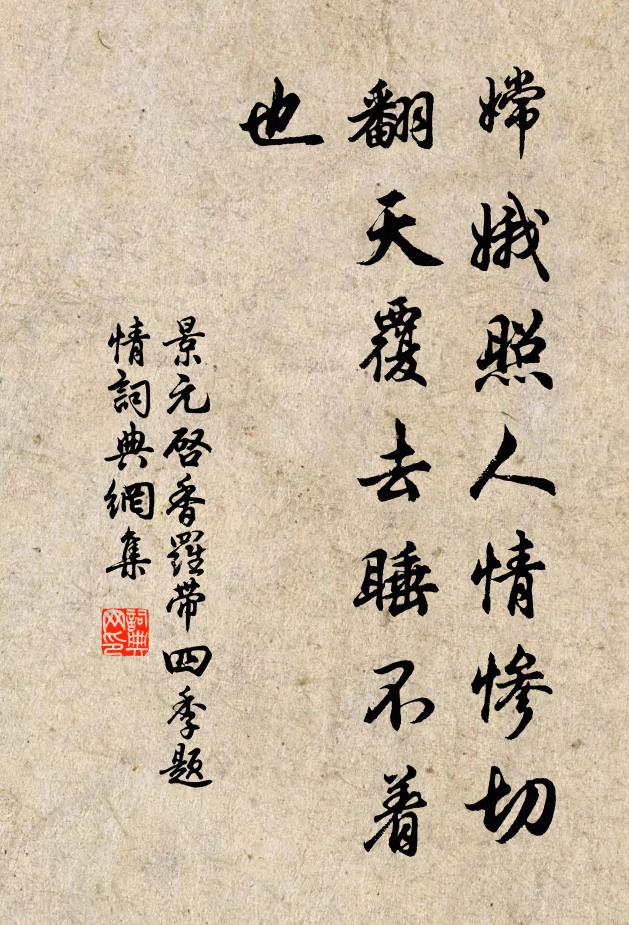 嫦娥照人情慘切
翻天覆去睡不着
也
景元啓香羅帶四季題
情詞典網集
詞典网印